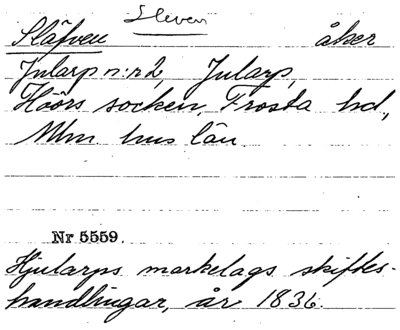 Sleven
Släfven åker
Jularp n:r 2, Jularp,
Höörs socken, Frosta hd,
Mlm hus län.
Nr 5559.
Hjularps markelags skiftes-
handlingar, år 1836.